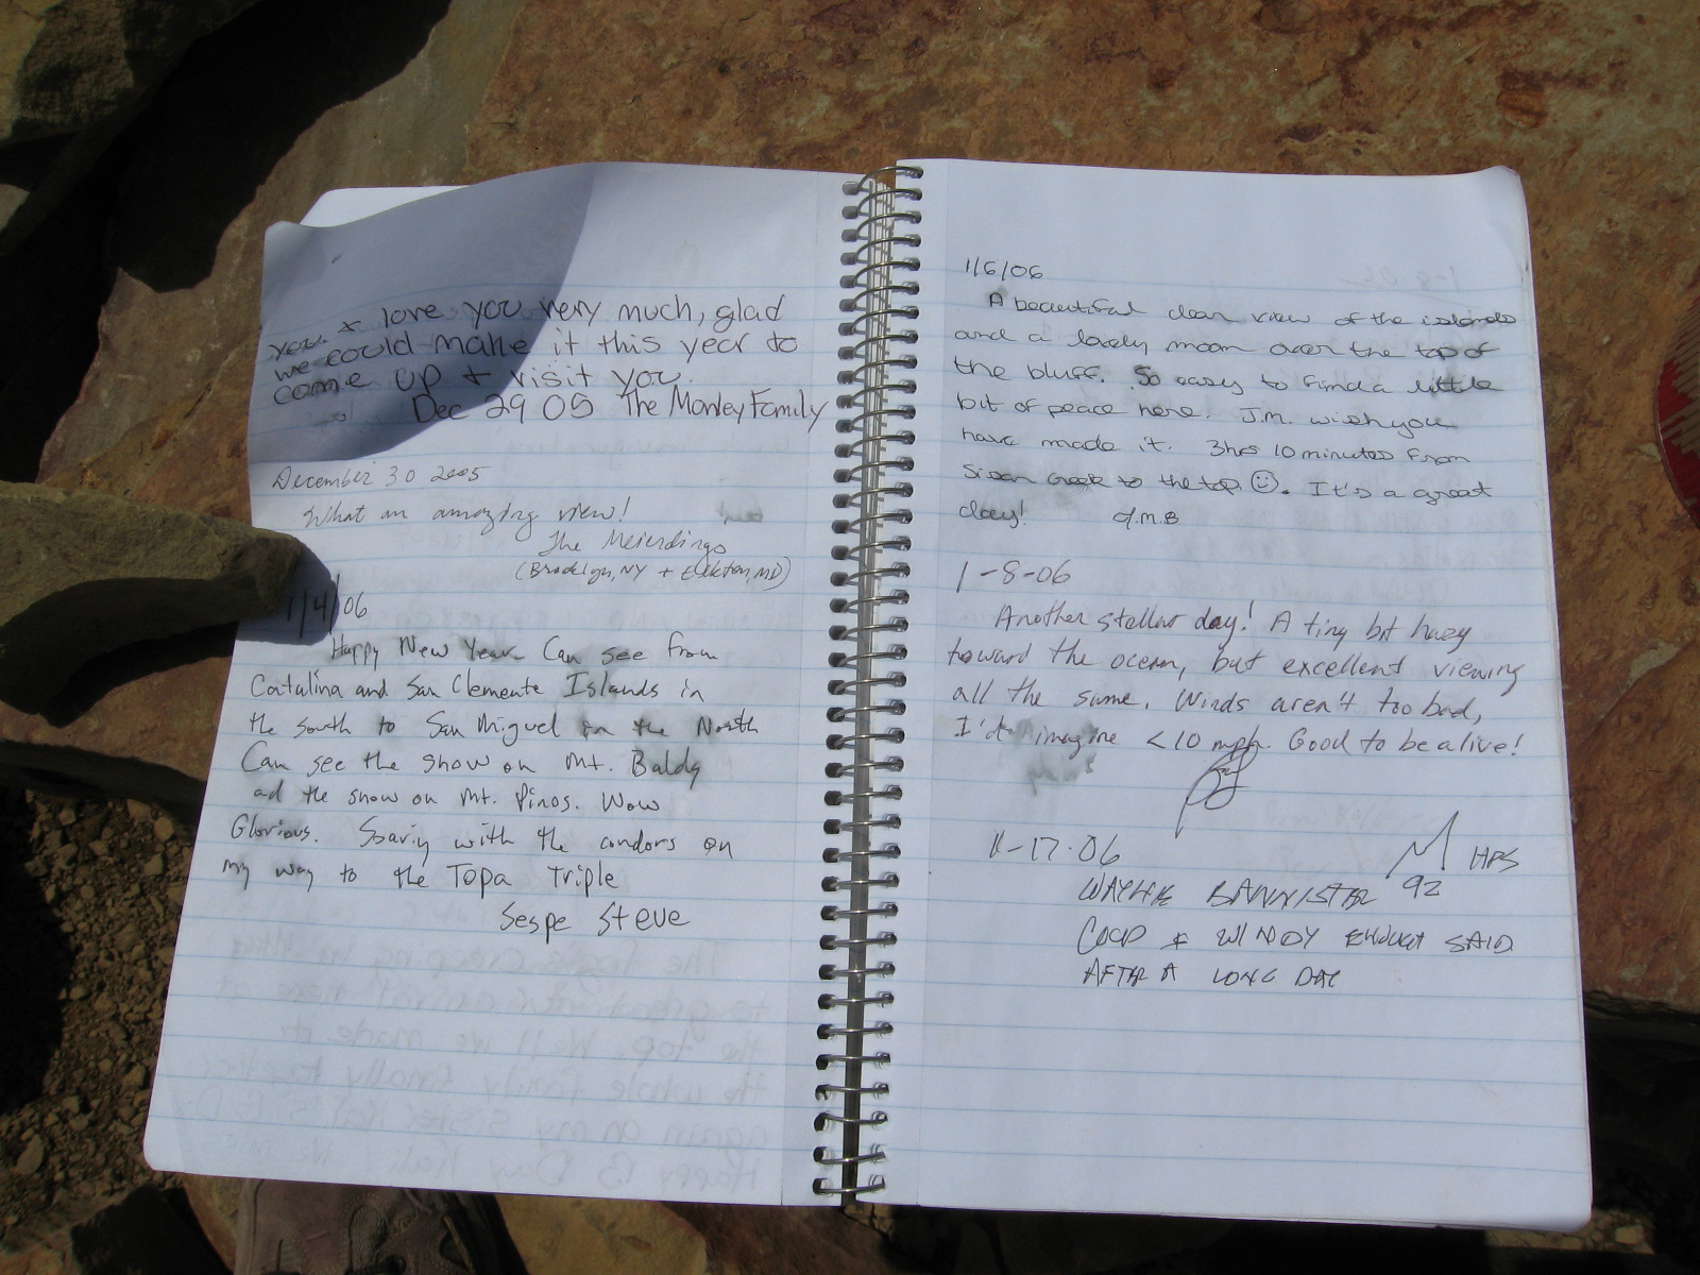 you. + love you very much, glad
we could make it this year to
come up + visit you.
Dec 29 05 The Manley Family
December 30 2005
What an amazing view!
The Meierdings
(Brooklyn, NY + Elkton, MD)
1/4/06
Happy New Year Can see from
Catalina and San Clemente Islands in
the south to San Miguel in the North
Can see the snow on Mt. Baldy
ad the snow on Mt. Pinos. Wow
Glorious. Soaring with the condors on
my way to the Topa Triple
Sespe Steve
1/6/06
A beautiful clear view of the islands
and a lovely moon over the top of
the bluff. So easy to find a little
bit of peace here. J.M. wish you
have made it. 3hrs 10 minutes from
Sisar Creek to the top ☺. It's a great
day! J.M.B
1-8-06
Another stellar day! A tiny bit hazy
toward the ocean, but excellent viewing
all the same. Winds aren't too bad,
I'd imagine <10 mph. Good to be alive!
11-17-06 HPS
WAYNE BANNISTER 92
COLD & WINDY ENOUGH SAID
AFTER A LONG DAY